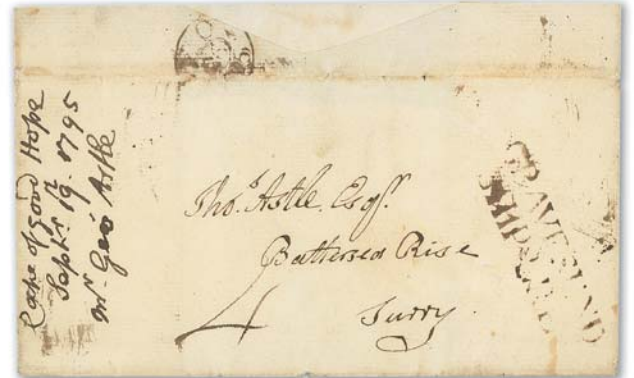 Cape of Good Hope
Septr. 19th 1795
Mr. Geo Astle
Thos. Astle. Esqr.
Battersea Rise
Surry.
4
GRAVESEND
SHIP LRE